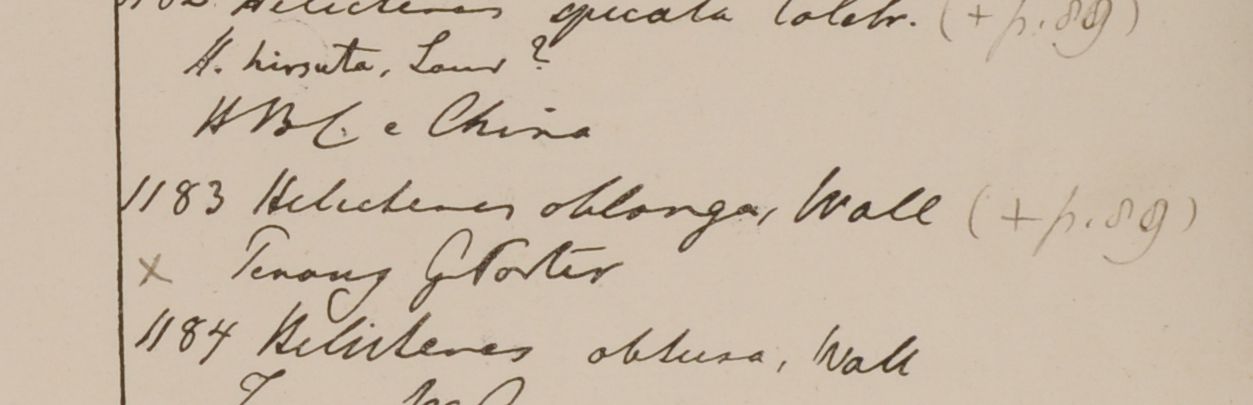 1182 Helicteres spicata Colebr. (+ p. 89)
H. hirsuta, Lour ?
HBC. e China
1183 Helicteres oblonga, Wall (+ p. 89)
x Penang G Porter
1184 Helicteres obtusa, Wall